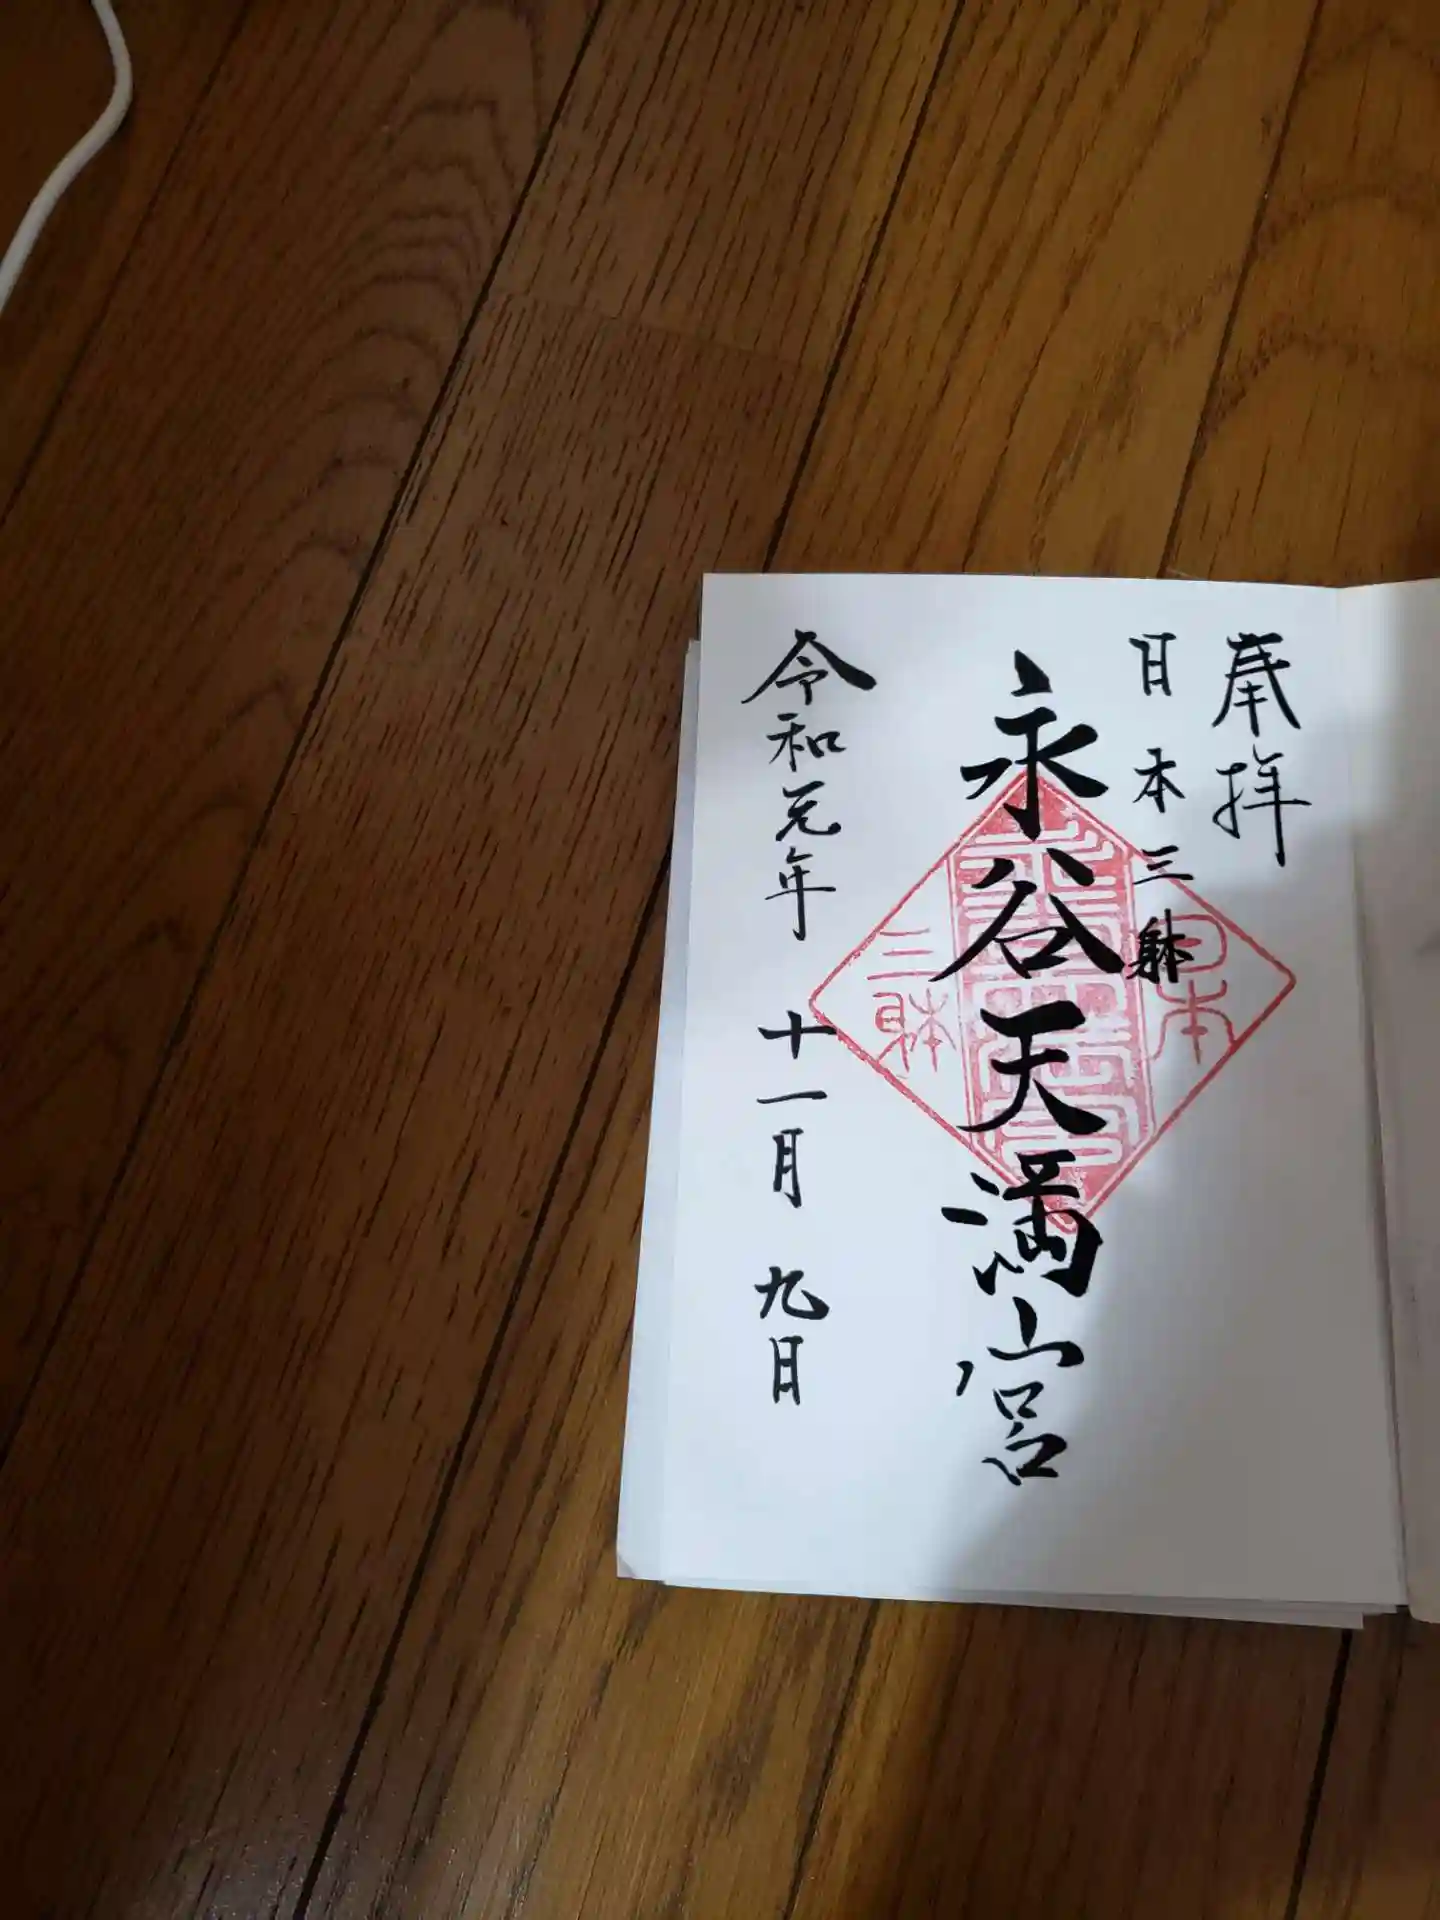 奉拝
日本三躰
永谷天満宮
令和元年 十一月 九日
日本
三躰